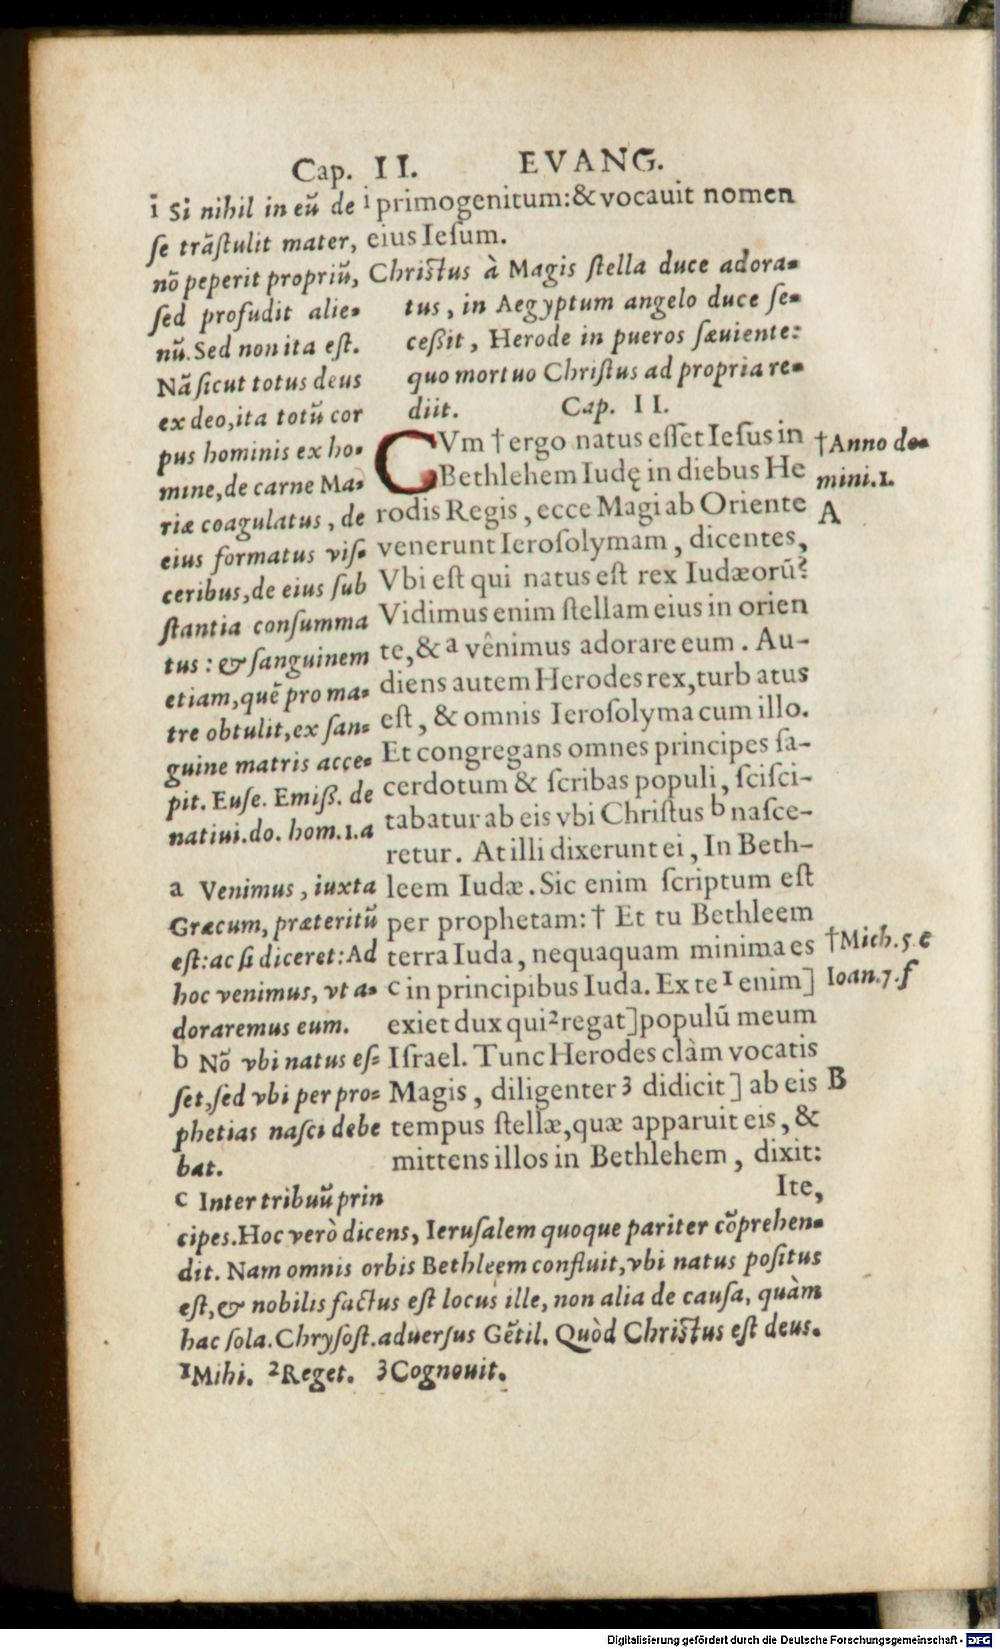 Cap. II. EVANG.
i primogenitum:& vocauit nomen
eius Iesum.
Christus à Magis stella duce adora-
tus, in Aegyptum angelo duce se-
ceßit, Herode in pueros sæuiente:
quo mortuo Christus ad propria re-
diit. Cap. II.
CVm † ergo natus esset Iesus in
Bethlehem Iudę in diebus He
rodis Regis, ecce Magi ab Oriente
venerunt Ierosolymam, dicentes,
Vbi est qui natus est rex Iudæorũ?
Vidimus enim stellam eius in orien
te,& a vênimus adorare eum. Au-
diens autem Herodes rex,turb atus
est, & omnis Ierosolyma cum illo.
Et congregans omnes principes sa-
cerdotum & scribas populi, scisci-
tabatur ab eis vbi Christus b nasce-
retur. At illi dixerunt ei, In Beth-
leem Iudæ. Sic enim scriptum est
per prophetam: † Et tu Bethleem
terra Iuda, nequaquam minima es
c in principibus Iuda. Ex te 1 enim]
exiet dux qui 2 regat] populũ meum
Israel. Tunc Herodes clàm vocatis
Magis, diligenter 3 didicit] ab eis
tempus stellæ,quæ apparuit eis, &
mittens illos in Bethlehem, dixit:
Ite,
i Si nihil in eũ de
se trãstulit mater,
nõ peperit propriũ,
sed profudit alie-
nũ. Sed non ita est.
Nã sicut totus deus
ex deo,ita totũ cor
pus hominis ex ho-
mine,de carne Ma-
riæ coagulatus, de
eius formatus vis-
ceribus,de eius sub
stantia consumma
tus: & sanguinem
etiam,quẽ pro ma-
tre obtulit,ex san-
guine matris acce-
pit. Euse. Emiß. de
natiui.do. hom.1.a
a Venimus, iuxta
Græcum, præteritũ
est: ac si diceret: Ad
hoc venimus, vt a-
doraremus eum.
b Nõ vbi natus es-
set,sed vbi per pro-
phetias nasci debe
bat.
c Inter tribuũ prin
cipes. Hoc verò dicens, Ierusalem quoque pariter cõprehen-
dit. Nam omnis orbis Bethleem confluit,vbi natus positus
est,& nobilis factus est locus ille, non alia de causa, quàm
hac sola. Chrysost. aduersus Gẽtil. Quòd Christus est deus.
1 Mihi. 2 Reget. 3 Cognouit.
†Anno do-
mini.1.
A
†Mich.5.c
Ioan.7.f
B
Digitalisierung gefördert durch die Deutsche Forschungsgemeinschaft - DFG